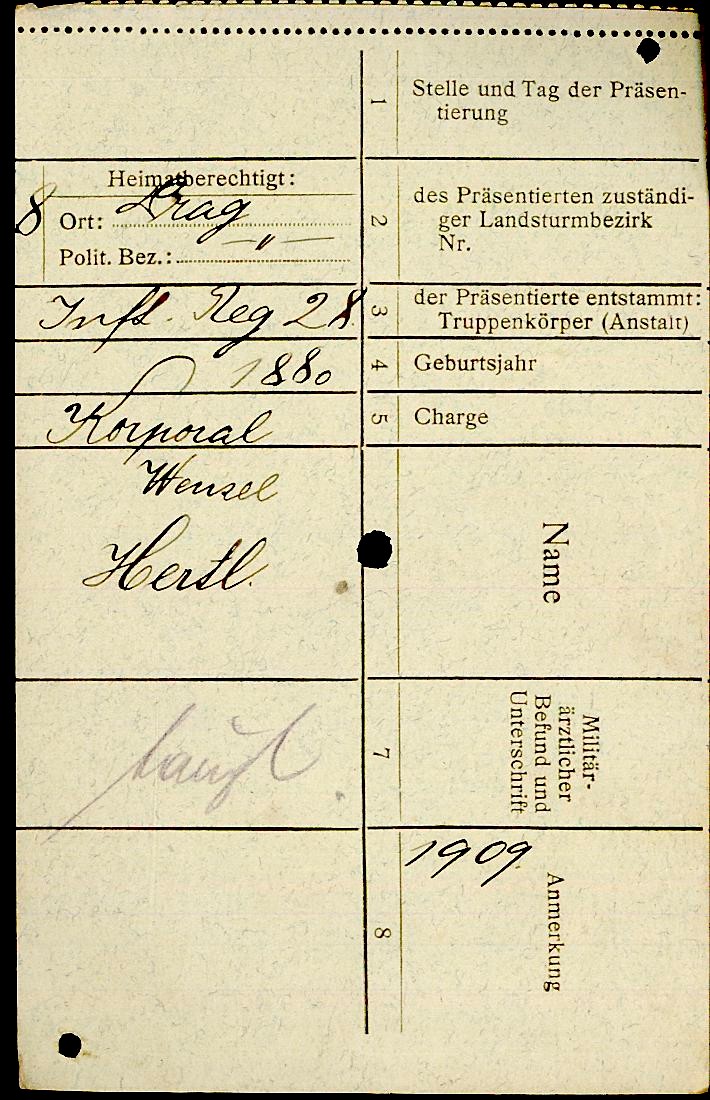 1
Stelle und Tag der Präsen-
tierung
Heimatberechtigt:
8
Ort: Prag
Polit. Bez.: — „ —
2
des Präsentierten zuständi-
ger Landsturmbezirk
Nr.
Inft. Reg 28
3
der Präsentierte entstammt:
Truppenkörper (Anstalt)
1880
4
Geburtsjahr
Korporal
5
Charge
Wenzel
Hertl.
Name
taugl
7
Militär-
ärztlicher
Befund und
Unterschrift
1909
8
Anmerkung